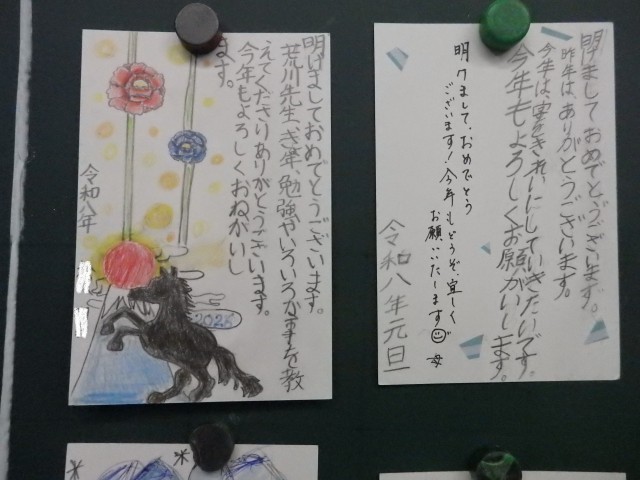 明けましておめでとうございます。
荒川先生、去年、勉強やいろいろな事を教
えてくださりありがとうございます。
今年もよろしくおねがいし
ます。
令和八年
2026
明けましておめでとうございます。
昨年は、ありがとうございます。
今年は、字をきれいにしていきたいです。
今年もよろしくお願がいします。
明けまして、おめでとう
ございます!今年もどうぞ、宜しく
お願いいたします 母
令和八年元旦